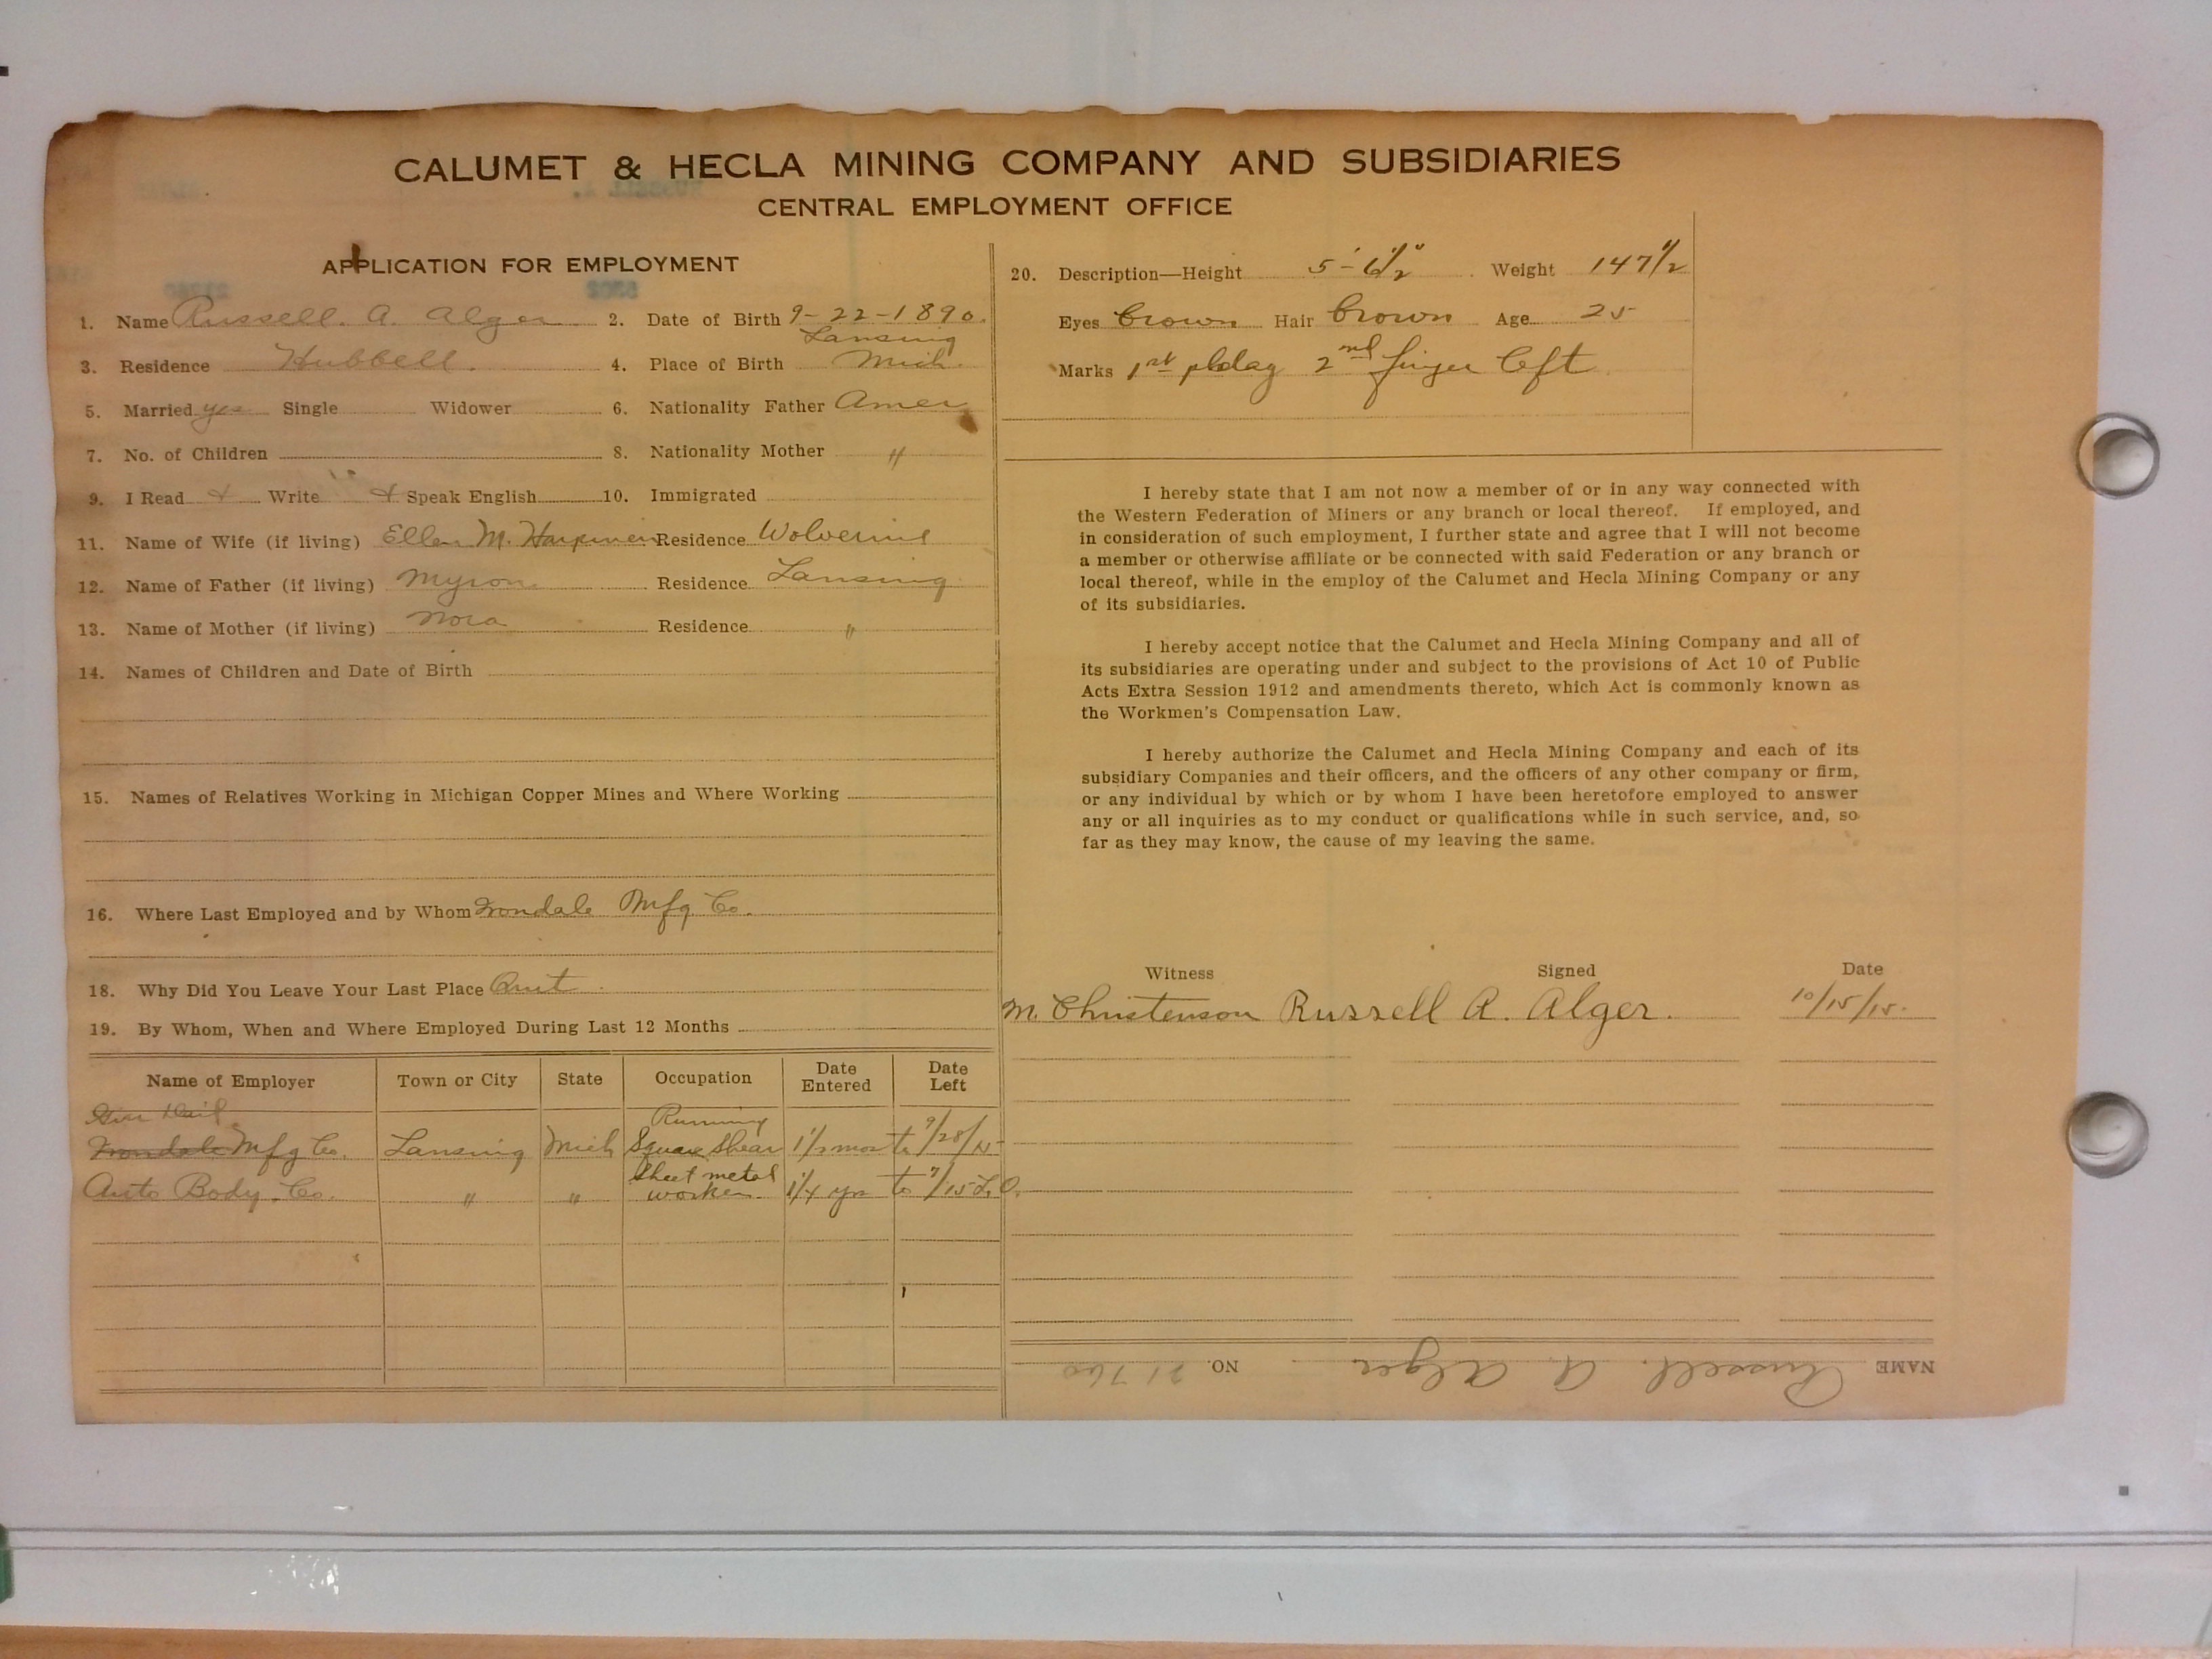 CALUMET & HECLA MINING COMPANY AND SUBSIDIARIES
CENTRAL EMPLOYMENT OFFICE
APPLICATION FOR EMPLOYMENT
1. Name Russell. A. Alger 2. Date of Birth 9-22-1890.
3. Residence Hubbell. 4. Place of Birth Lansing Mich.
5. Married yes Single Widower 6. Nationality Father Amer
7. No. of Children 8. Nationality Mother "
9. I Read & Write & Speak English 10. Immigrated
11. Name of Wife (if living) Ellen M. Residence Wolverine
12. Name of Father (if living) Myron Residence Lansing
13. Name of Mother (if living) Nora Residence "
14. Names of Children and Date of Birth
15. Names of Relatives Working in Michigan Copper Mines and Where Working
16. Where Last Employed and by Whom Irondale Mfg. Co.
18. Why Did You Leave Your Last Place Quit
19. By Whom, When and Where Employed During Last 12 Months
Name of Employer Town or City State Occupation Date Entered Date Left
Irondale Mfg Co. Lansing Mich Running Square Shear 1 1/2 mos to
Auto Body Co. " " Sheet metal worker to 7/15 L.O.
20. Description—Height 5'-6½" Weight 147½
Eyes brown Hair brown Age 25
Marks 1st 2nd finger left
I hereby state that I am not now a member of or in any way connected with
the Western Federation of Miners or any branch or local thereof. If employed, and
in consideration of such employment, I further state and agree that I will not become
a member or otherwise affiliate or be connected with said Federation or any branch or
local thereof, while in the employ of the Calumet and Hecla Mining Company or any
of its subsidiaries.
I hereby accept notice that the Calumet and Hecla Mining Company and all of
its subsidiaries are operating under and subject to the provisions of Act 10 of Public
Acts Extra Session 1912 and amendments thereto, which Act is commonly known as
the Workmen's Compensation Law.
I hereby authorize the Calumet and Hecla Mining Company and each of its
subsidiary Companies and their officers, and the officers of any other company or firm,
or any individual by which or by whom I have been heretofore employed to answer
any or all inquiries as to my conduct or qualifications while in such service, and, so
far as they may know, the cause of my leaving the same.
Witness Signed Date
M. Christenson Russell A. Alger. 10/15/15.
NAME Russell. A. Alger NO. 21760